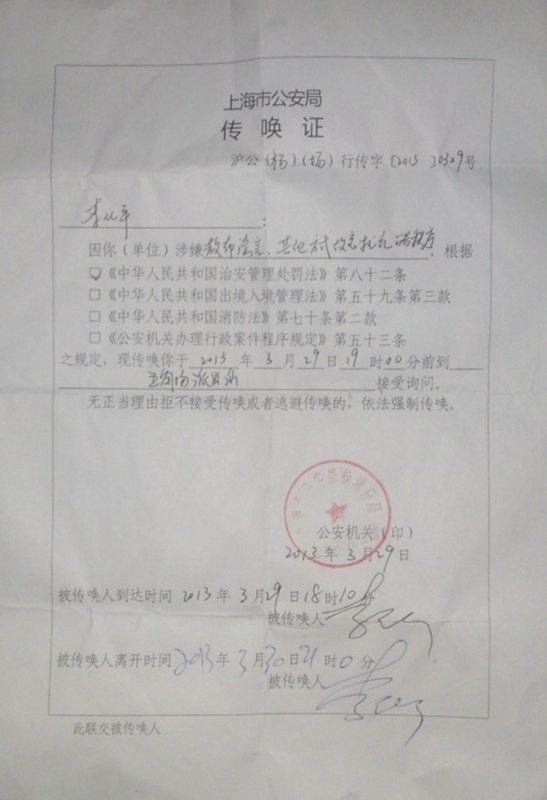 上海市公安局
传唤证
沪公(杨)(场)行传字〔2013〕0329号
李化平:
因你(单位)涉嫌散布谣言、其他方式故意扰乱公共秩序,根据
☑《中华人民共和国治安管理处罚法》第八十二条
□《中华人民共和国出境入境管理法》第五十九条第三款
□《中华人民共和国消防法》第七十条第二款
□《公安机关办理行政案件程序规定》第五十三条
之规定,现传唤你于2013年3月29日19时00分前到
五角场派出所接受询问。
无正当理由拒不接受传唤或者逃避传唤的,依法强制传唤。
公安机关(印)
2013年3月29日
被传唤人到达时间 2013年3月29日18时10分
被传唤人
被传唤人离开时间 2013年3月30日21时0分
被传唤人
此联交被传唤人